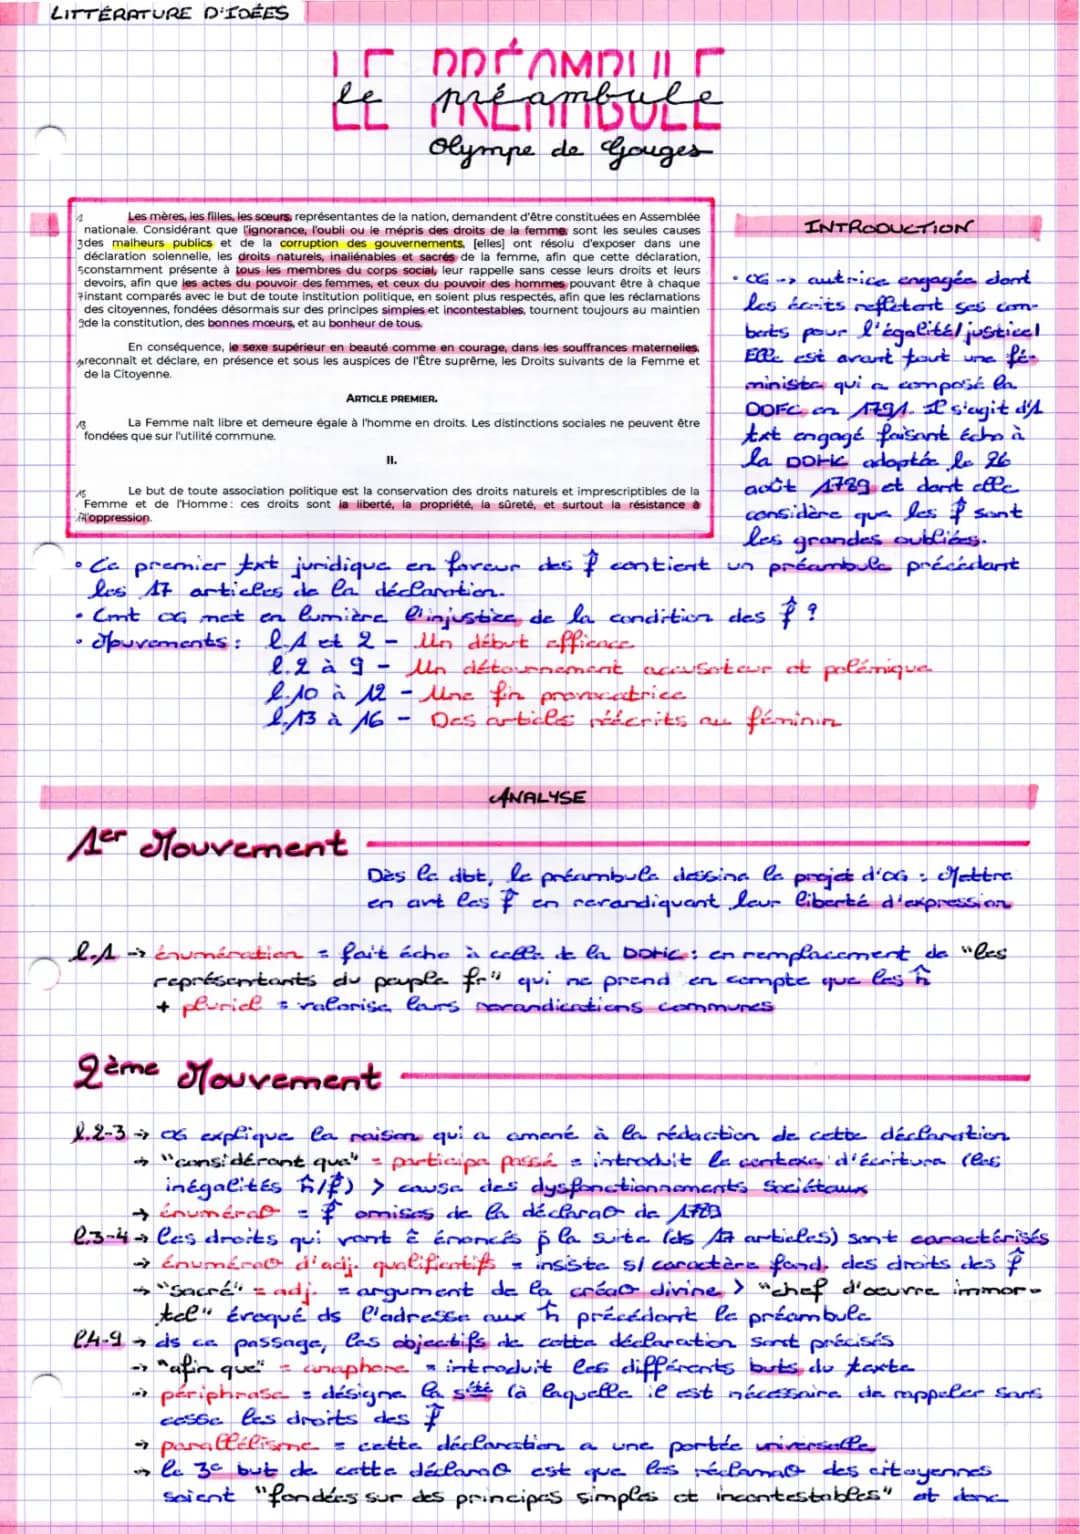 LITTÉRATURE D'IDÉES
LE PRÉAMBULE
le préambule
Olympe de Gouges
1 Les mères, les filles, les sœurs, représentantes de la nation, demandent d'être constituées en Assemblée
nationale. Considérant que l'ignorance, l'oubli ou le mépris des droits de la femme, sont les seules causes
3 des malheurs publics et de la corruption des gouvernements, [elles] ont résolu d'exposer dans une
déclaration solennelle, les droits naturels, inaliénables et sacrés de la femme, afin que cette déclaration,
5 constamment présente à tous les membres du corps social, leur rappelle sans cesse leurs droits et leurs
devoirs, afin que les actes du pouvoir des femmes, et ceux du pouvoir des hommes pouvant être à chaque
7 instant comparés avec le but de toute institution politique, en soient plus respectés, afin que les réclamations
des citoyennes, fondées désormais sur des principes simples et incontestables, tournent toujours au maintien
9 de la constitution, des bonnes mœurs, et au bonheur de tous.
En conséquence, le sexe supérieur en beauté comme en courage, dans les souffrances maternelles,
11 reconnaît et déclare, en présence et sous les auspices de l'Être suprême, les Droits suivants de la Femme et
de la Citoyenne.
ARTICLE PREMIER.
13 La Femme naît libre et demeure égale à l'homme en droits. Les distinctions sociales ne peuvent être
fondées que sur l'utilité commune.
II.
15 Le but de toute association politique est la conservation des droits naturels et imprescriptibles de la
Femme et de l'Homme : ces droits sont la liberté, la propriété, la sûreté, et surtout la résistance à
l'oppression.
INTRODUCTION
• OG -> autrice engagée dont
les écrits reflètent ses com-
bats pour l'égalité/justice!
Elle est avant tout une fé-
ministe qui a composé la
DDFC en 1791. Il s'agit d'1
txt engagé faisant écho à
la DDHC adoptée le 26
août 1789 et dont elle
considère que les f̂ sont
les grandes oubliées.
• Ce premier txt juridique en faveur des f̂ contient un préambule précédant
les 17 articles de la déclaration.
• Cmt OG met en lumière l'injustice de la condition des f̂ ?
• Mouvements : l.1 et 2 - Un début efficace
l.2 à 9 - Un détournement accusateur et polémique
l.10 à 12 - Une fin provocatrice
l.13 à 16 - Des articles réécrits au féminin
ANALYSE
1er Mouvement
Dès le dbt, le préambule dessine le projet d'OG : Mettre
en avt les f̂ en revendiquant leur liberté d'expression
l.1 -> énumération = fait écho à celle de la DDHC : en remplacement de "les
représentants du peuple fr" qui ne prend en compte que les ĥ
+ pluriel = valorise leurs revendications communes
2ème Mouvement
l.2-3 -> OG explique la raison qui a amené à la rédaction de cette déclaration
-> "considérant que" = participe passé = introduit le contexe d'écriture (les
inégalités ĥ/f̂) > cause des dysfonctionnements sociétaux
-> énuméraᵒ = f̂ omises de la déclaraᵒ de 1789
l.3-4 -> les droits qui vont ê énoncés p̄ la suite (ds 17 articles) sont caractérisés
-> énuméraᵒ d'adj. qualificatifs = insiste s/ caractère fond. des droits des f̂
-> "sacré" = adj. = argument de la créaᵒ divine > "chef d'œuvre immor-
tel" évoqué ds l'adresse aux ĥ précédant le préambule
l.4-9 -> ds ce passage, les objectifs de cette déclaration sont précisés
-> "afin que" = anaphore = introduit les différents buts du texte
-> périphrase = désigne la sté (à laquelle il est nécessaire de rappeler sans
cesse les droits des f̂
-> parallélisme = cette déclaration a une portée universelle
-> le 3e but de cette déclaraᵒ est que les réclamaᵒ des citoyennes
soient "fondées sur des principes simples et incontestables" et donc